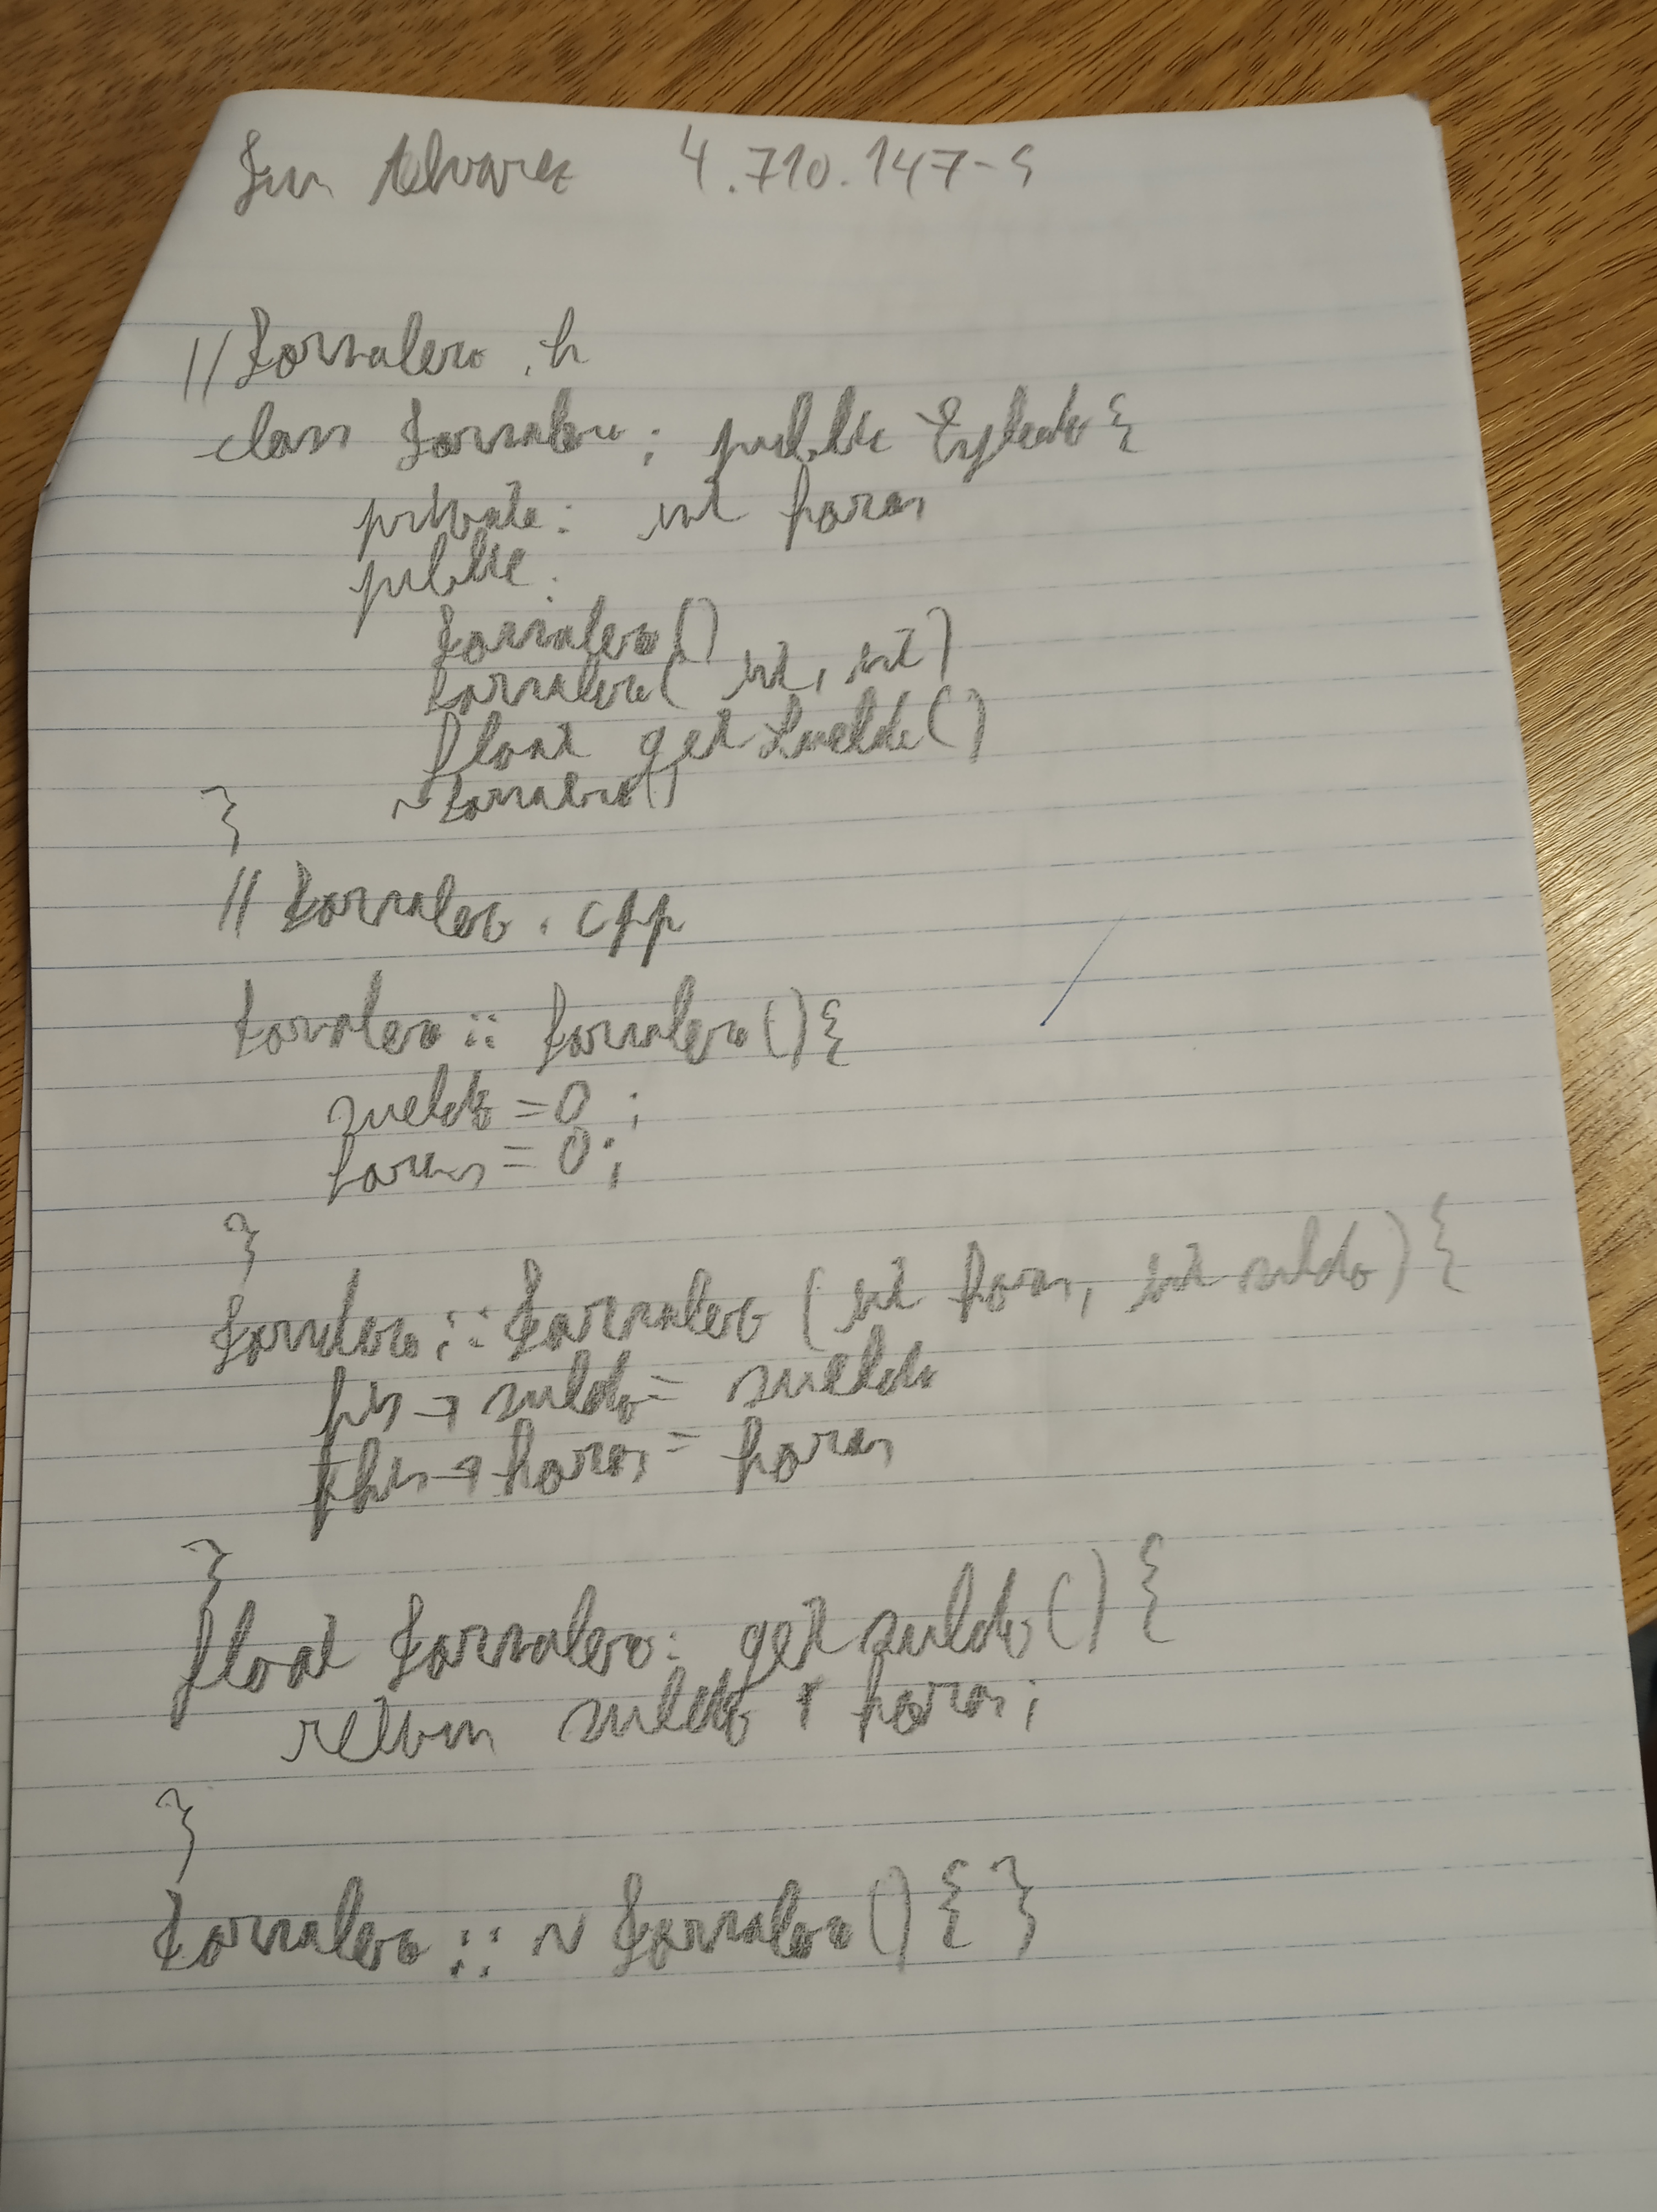 Juan Alvarez 4.710.147-5
// Jornalero.h
class Jornalero : public Empleado {
private: int horas
public:
Jornalero()
Jornalero( int, int)
float getSueldo()
~Jornalero()
}
// Jornalero.cpp
Jornalero :: Jornalero(){
sueldo = 0 ;
horas = 0 ;
}
Jornalero :: Jornalero (int horas, int sueldo) {
this → sueldo = sueldo
this → horas = horas
}
float Jornalero: getsueldo() {
return sueldo * horas;
}
Jornalero :: ~ Jornalero() { }